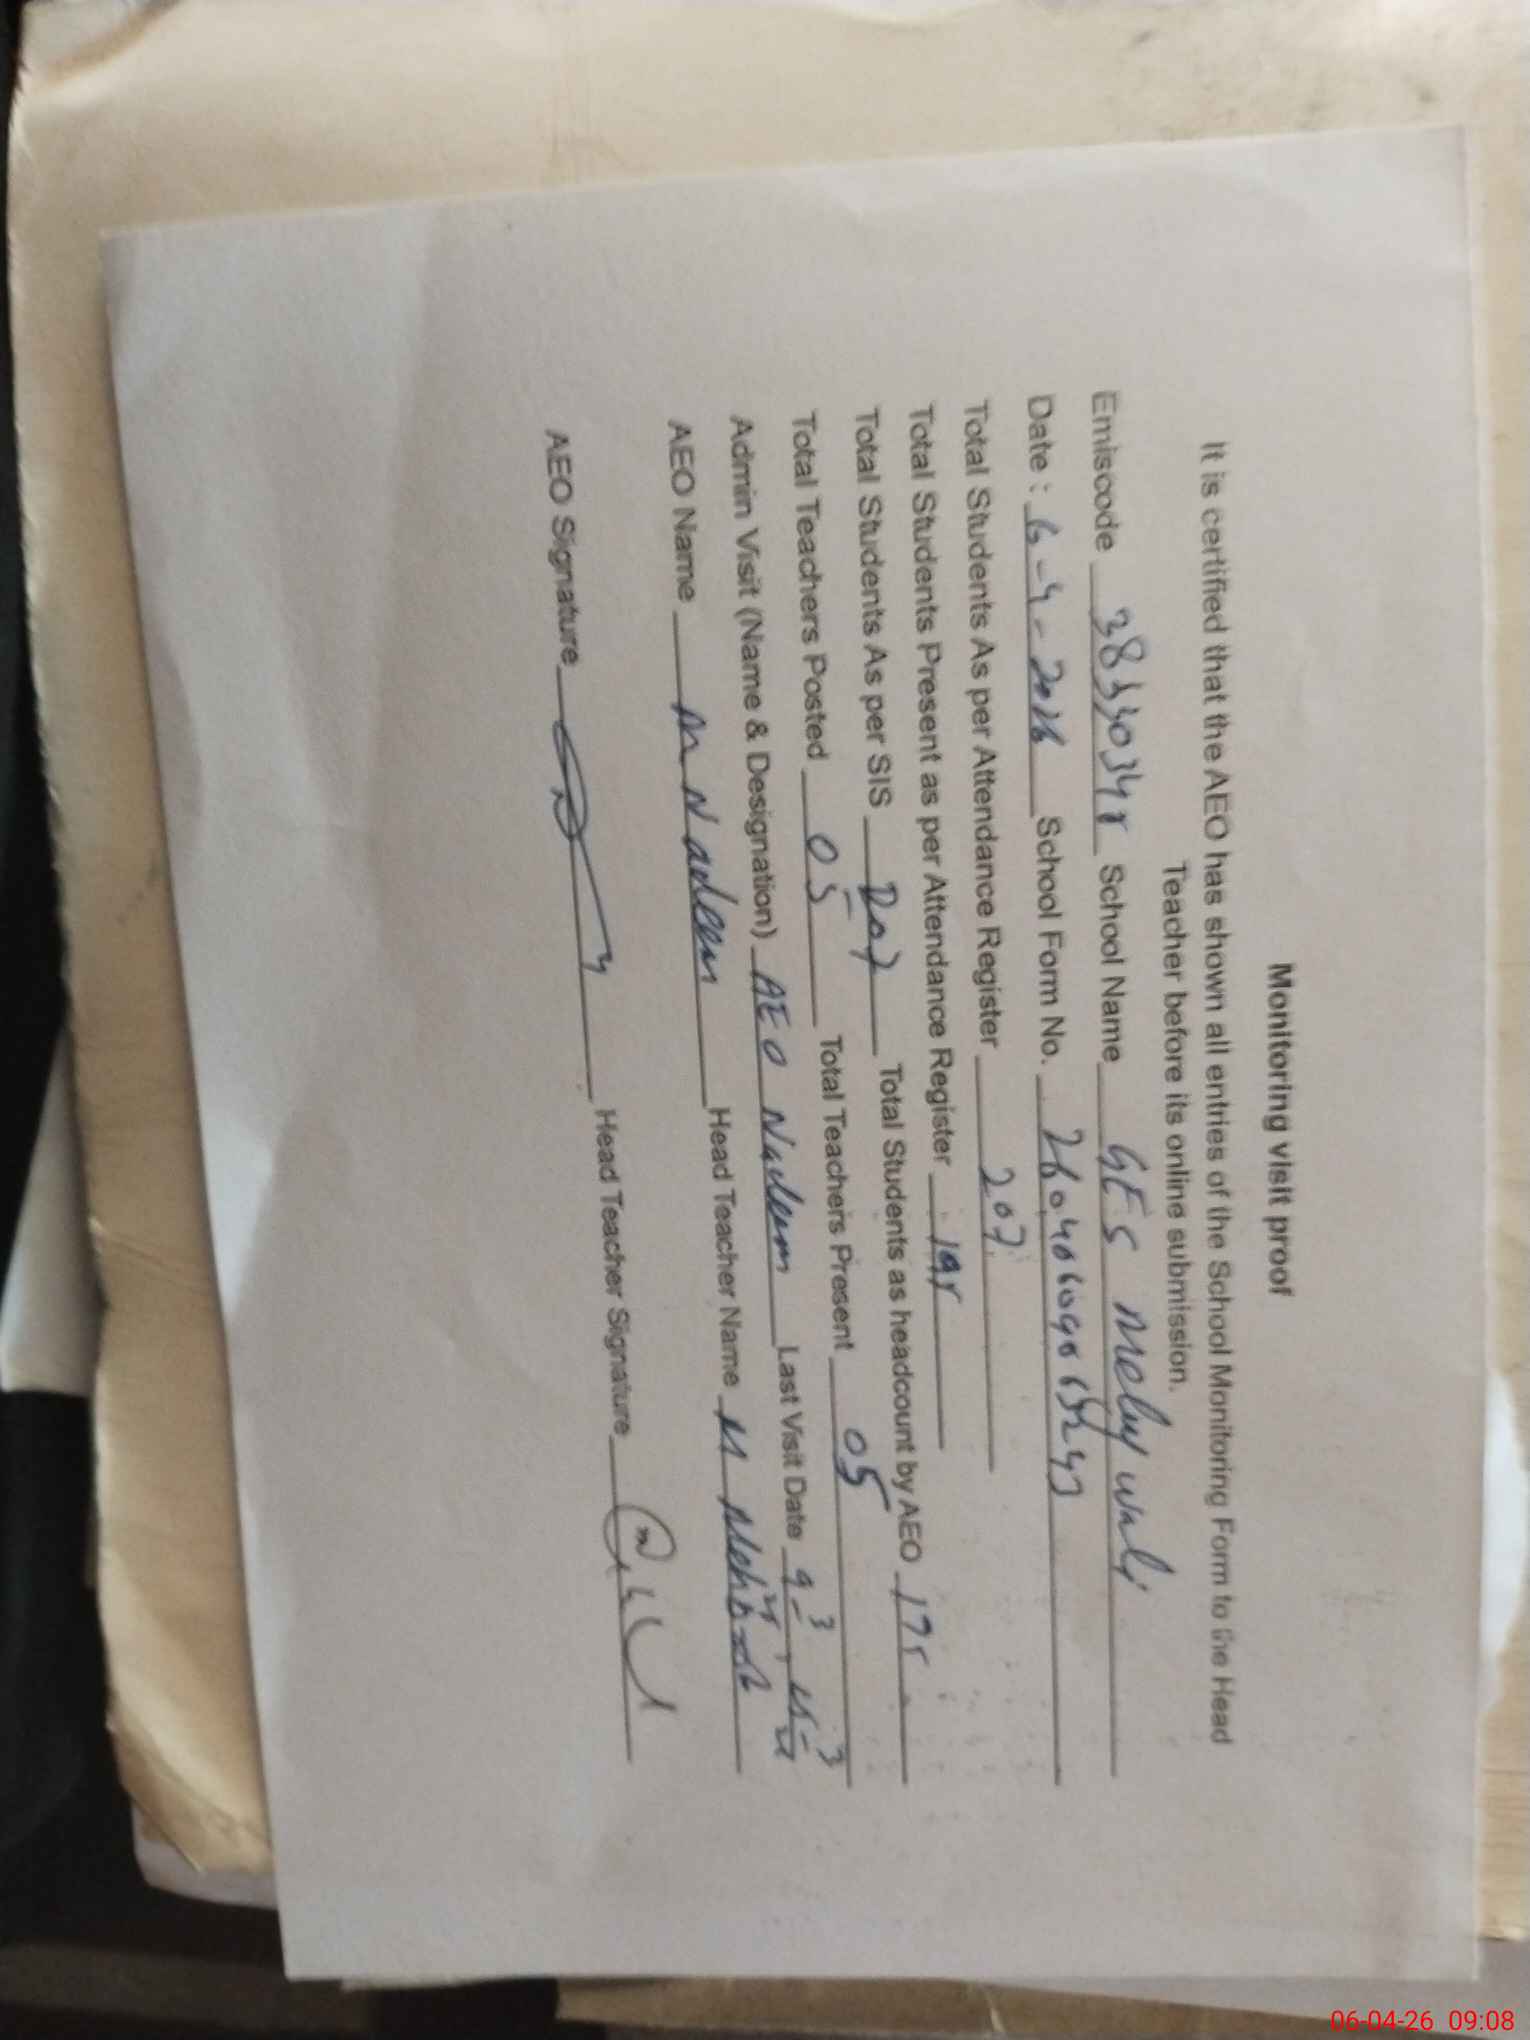 Monitoring visit proof
It is certified that the AEO has shown all entries of the School Monitoring Form to the Head
Teacher before its online submission.
Emiscode School Name GES
Date : 6-4-2026 School Form No.
Total Students As per Attendance Register 207
Total Students Present as per Attendance Register
Total Students As per SIS Total Students as headcount by AEO
Total Teachers Posted 05 Total Teachers Present 05
Admin Visit (Name & Designation) AEO Nadeem Last Visit Date
AEO Name M Nadeem Head Teacher Name M
AEO Signature Head Teacher Signature
06-04-26 09:08